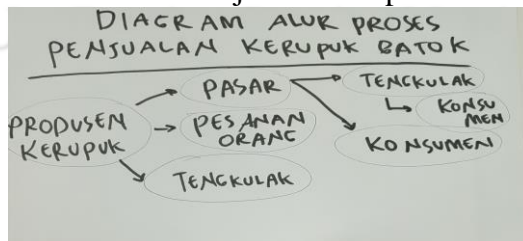 DIAGRAM ALUR PROSES
PENJUALAN KERUPUK BATOK
PRODUSEN
KERUPUK
PASAR
PESANAN
ORANG
TENGKULAK
TENGKULAK
KONSU
MEN
KONSUMEN